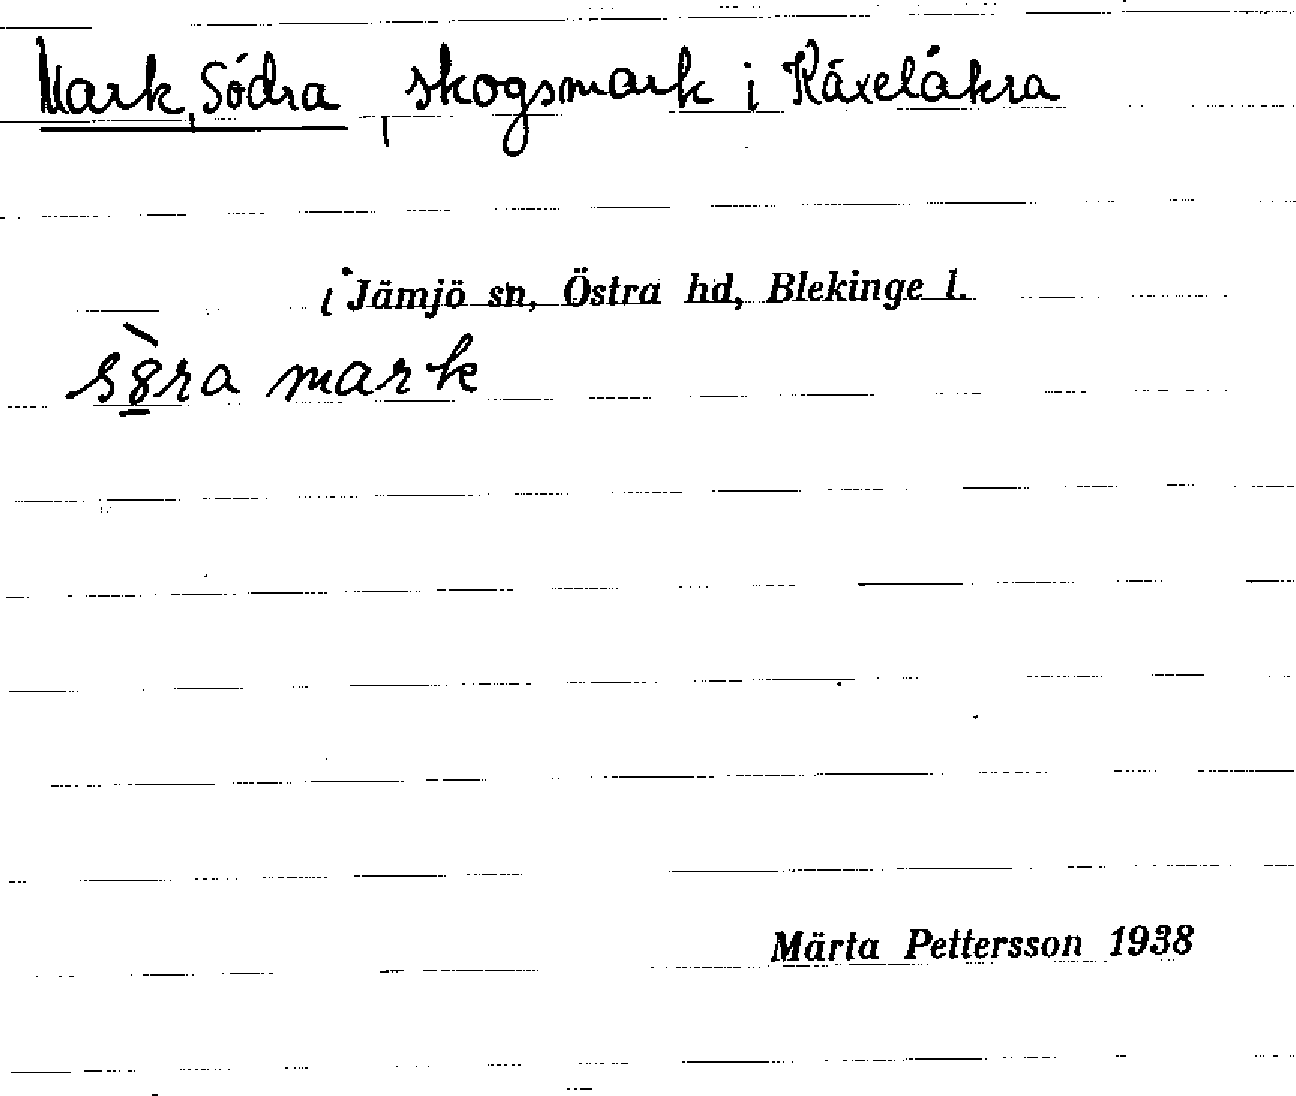 Mark, Södra, skogsmark i Råxelåkra
i Jämjö sn, Östra hd, Blekinge l.
mark
Märta Pettersson 1938